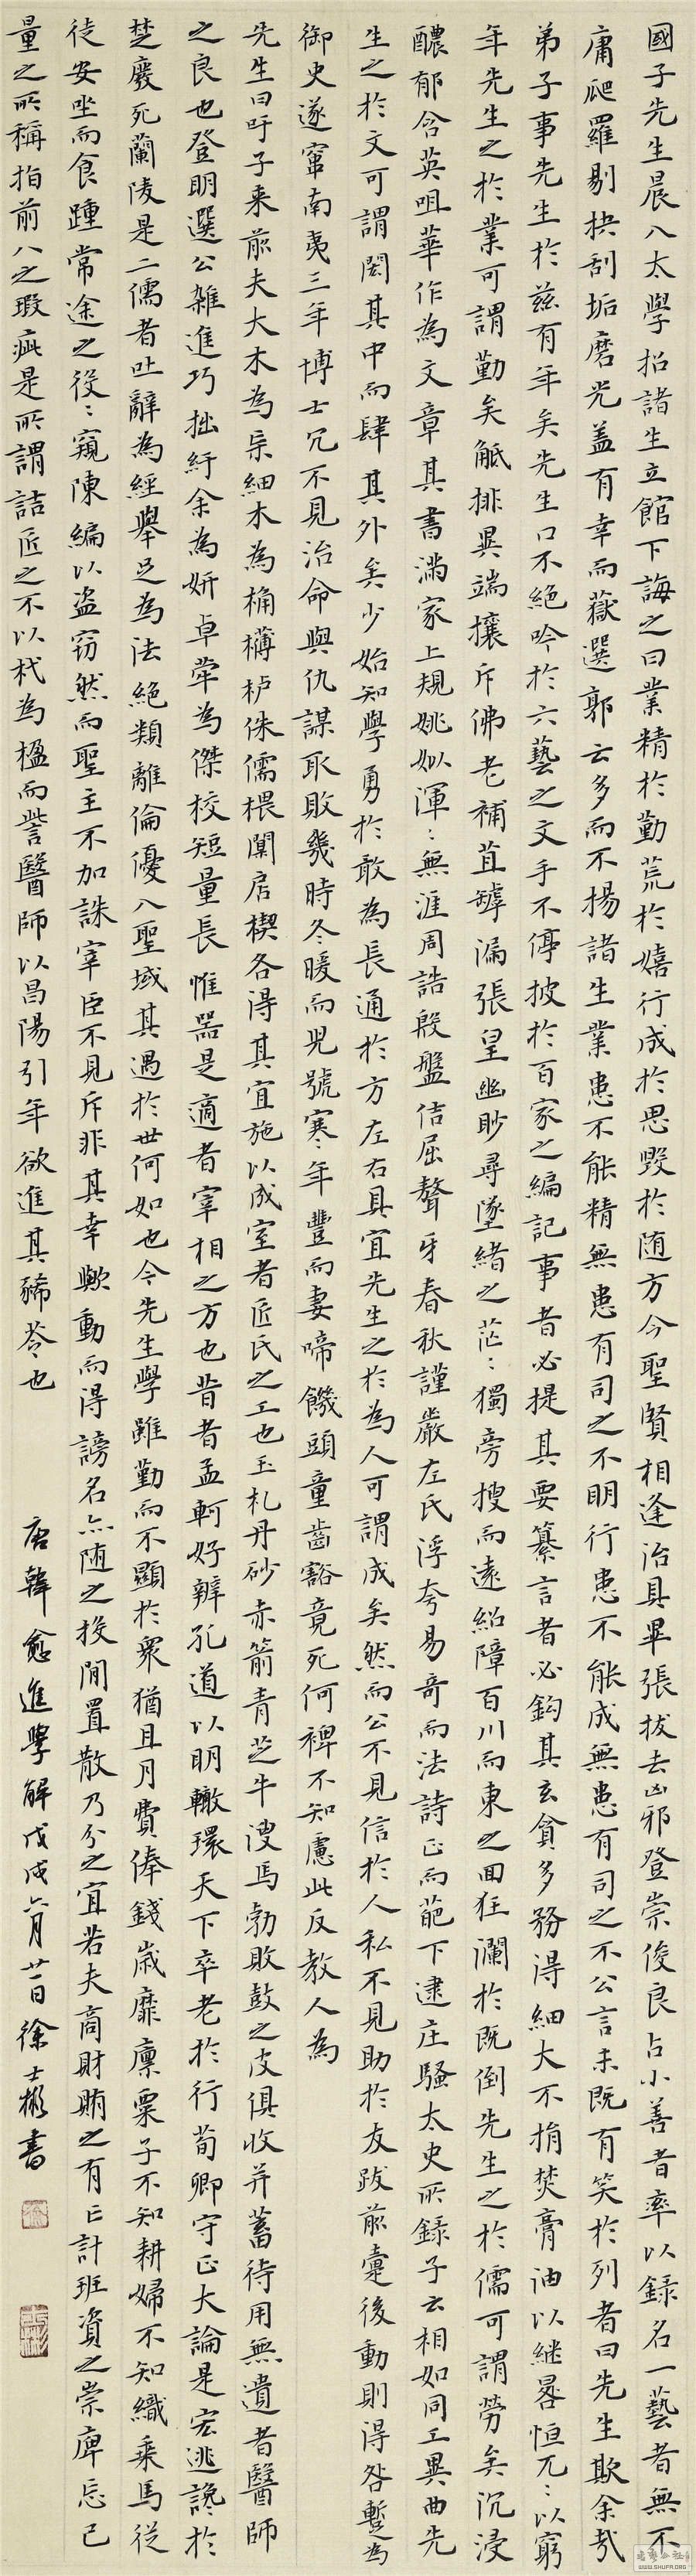 國子先生晨入太學招諸生立館下誨之曰業精於勤荒於嬉行成於思毀於隨方今聖賢相逢治具畢張拔去凶邪登崇俊良占小善者率以錄名一藝者無不
庸爬羅剔抉刮垢磨光蓋有幸而獲選孰云多而不揚諸生業患不能精無患有司之不明行患不能成無患有司之不公言未既有笑於列者曰先生欺余哉
弟子事先生於茲有年矣先生口不絕吟於六藝之文手不停披於百家之編記事者必提其要纂言者必鈎其玄貪多務得細大不捐焚膏油以繼晷恒兀〻以窮
年先生之於業可謂勤矣觝排異端攘斥佛老補苴罅漏張皇幽眇尋墜緒之茫〻獨旁搜而遠紹障百川而東之回狂瀾於既倒先生之於儒可謂勞矣沉浸
醲郁含英咀華作為文章其書滿家上規姚姒渾〻無涯周誥殷盤佶屈聱牙春秋謹嚴左氏浮夸易奇而法詩正而葩下逮庄騷太史所錄子云相如同工異曲先
生之於文可謂閎其中而肆其外矣少始知學勇於敢為長通於方左右具宜先生之於為人可謂成矣然而公不見信於人私不見助於友跋前疐後動則得咎暫為
御史遂竄南夷三年博士冗不見治命與仇謀取敗幾時冬暖而兒號寒年豐而妻啼饑頭童齒豁竟死何裨不知慮此反教人為
先生曰吁子來前夫大木為杗細木為桷欂栌侏儒椳闑扂楔各得其宜施以成室者匠氏之工也玉札丹砂赤箭青芝牛溲馬勃敗鼓之皮俱收并蓄待用無遺者醫師
之良也登明選公雜進巧拙紆余為妍卓犖為傑校短量長惟器是適者宰相之方也昔者孟軻好辯孔道以明轍環天下卒老於行荀卿守正大論是宏逃讒於
楚廢死蘭陵是二儒者吐辭為經舉足為法絕類離倫優入聖域其遇於世何如也今先生學雖勤而不顯於眾猶且月費俸錢歲靡廩粟子不知耕婦不知織乘馬從
徒安坐而食踵常途之役〻窺陳編以盜竊然而聖主不加誅宰臣不見斥非其幸歟動而得謗名亦隨之投閒置散乃分之宜若夫商財賄之有亡計班資之崇庳忘己
量之所稱指前人之瑕疵是所謂詰匠之不以杙為楹而訾醫師以昌陽引年欲進其豨苓也
唐韓愈進學解戊戌六月廿一日徐士彬書